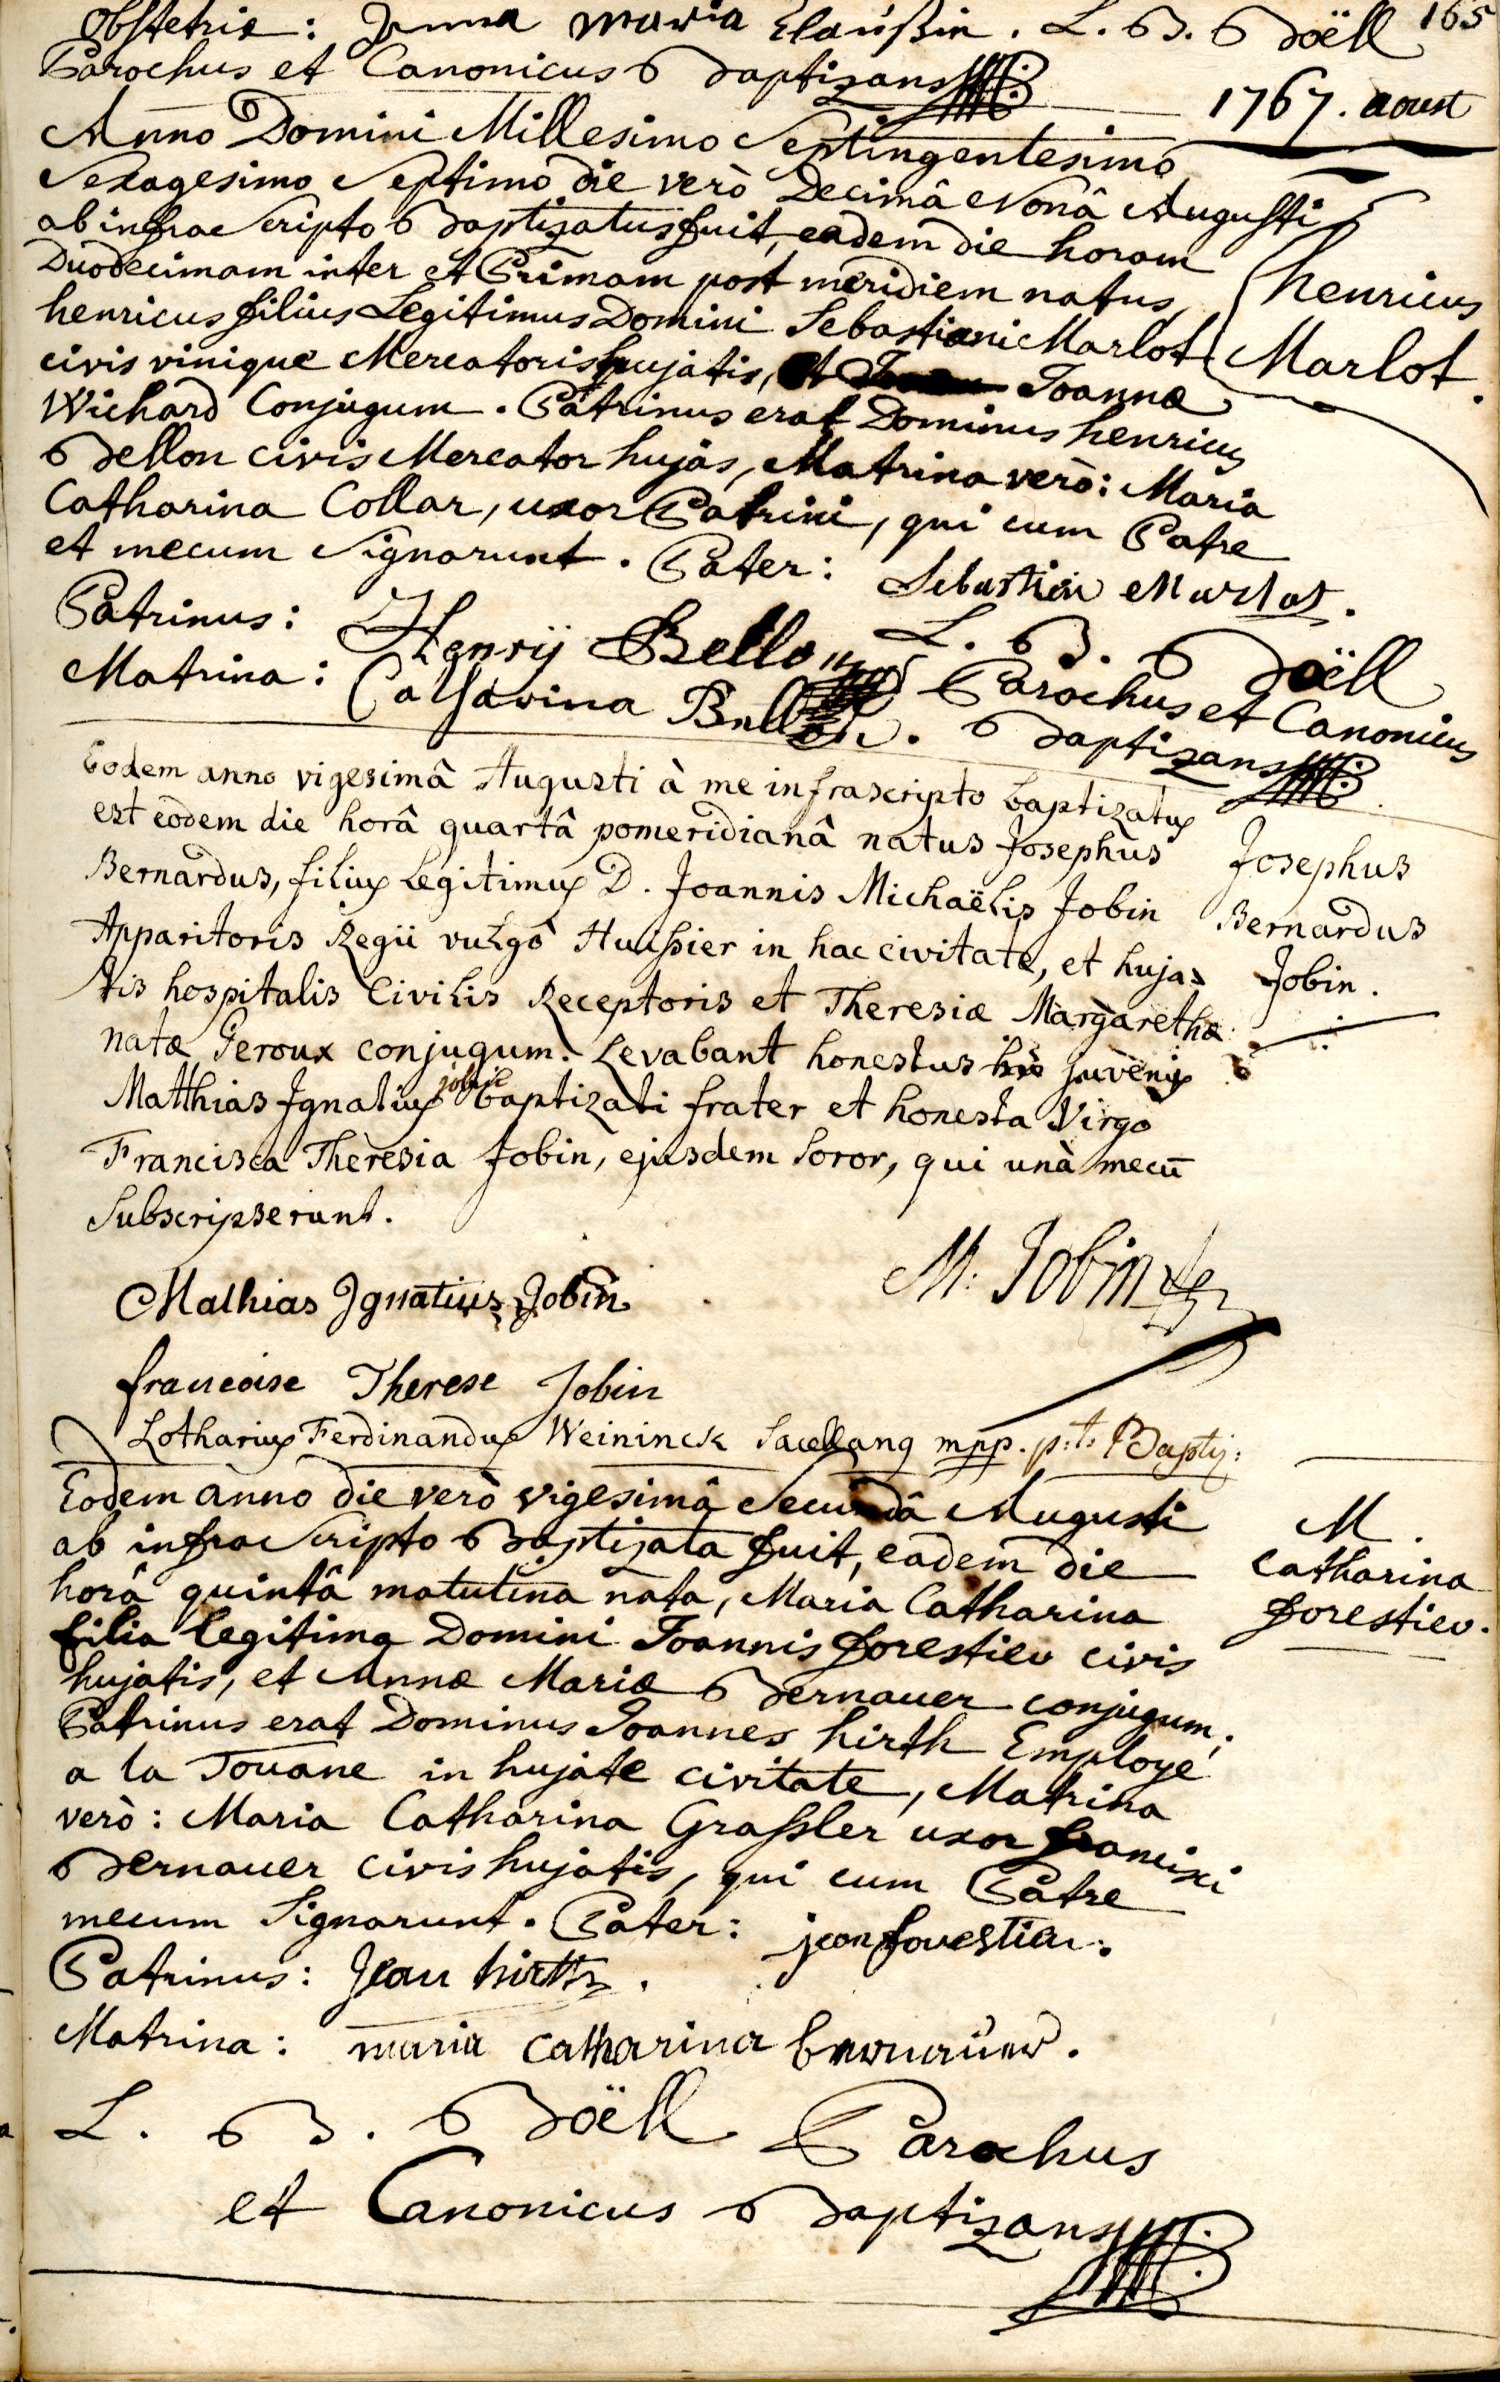 165
Obstetrix: Anna maria Claußin. L. B. Boëll
Parochus et Canonicus Baptizans
1767. aoust
Anno Domini Millesimo Septingentesimo
Sexagesimo Septimo die verò Decimâ Nonâ Augusti
ab infra Scripto Baptizatus fuit, eadem die horam
Duodecimam inter et Primam post meridiem natus,
henricus filius Legitimus Domini Sebastiani Marlot
civis vinique Mercatoris hujatis, et Joannæ
Wichard Conjugum. Patrinus erat Dominus henricus
Bellon civis Mercator hujás, Matrina verò: Maria
Catharina Collar, uxor Patrini, qui cum Patre
et mecum Signarunt. Pater: Sebastien Marlot.
henricus
Marlot.
Patrinus: Henrÿ Bellon
Matrina: Catharina Bellon.
L. B. Boëll
Parochus et Canonicus
Baptizans
Eodem anno vigesimâ Augusti à me infrascripto baptizatus
est eodem die horâ quartâ pomeridianâ natus Josephus
Bernardus, filius legitimus D. Joannis Michaëlis Jobin
Apparitoris Regii vulgò Huissier in hac civitate, et huja-
tis hospitalis Civilis Receptoris et Theresiæ Margarethæ
natæ Geroux conjugum. Levabant honestus juvenis
Matthias Ignatius jobin baptizati frater et honesta Virgo
Francisca Theresia Jobin, ejusdem Soror, qui unà mecū
Subscripserunt.
Josephus
Bernardus
Jobin.
M: Jobin
Mathias Ignatius Jobin
francoise Therese Jobin
Lotharius Ferdinandus Weininck Sacellanq mpp. p:t: Baptiz:
Eodem anno die verò vigesimâ Secundâ Augusti
ab infra Scripto Baptizata fuit, eadem die
horâ quintâ matutina nata, Maria Catharina
filia legitima Domini Joannis forestier civis
hujatis, et Annæ Mariæ Bernauer conjugum;
Patrinus erat Dominus Joannes hirth Employé
a la Douane in hujate civitate, Matrina
verò: Maria Catharina Grassler uxor francisci
Bernauer civis hujatis, qui cum Patre
mecum Signarunt. Pater: jean forestier.
M.
Catharina
forestier.
Patrinus: Jean hirth.
Matrina: maria catharina bernauer.
L. B. Boëll Parochus
et Canonicus Baptizans